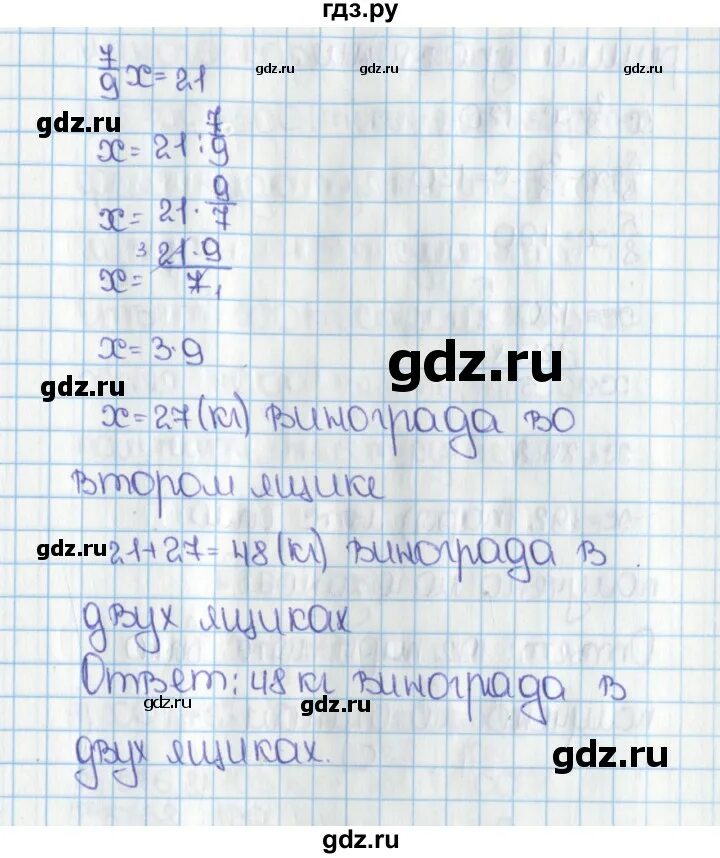 гдз.ру
7/9 x = 21
gdz.ru
gdz.ru
gdz.ru
x = 21 : 7/9
gdz.ru
x = 21 · 9/7
x = 3 21·9/7 1
x = 3·9
gdz.ru
gdz.ru
x = 27 (кг) винограда во
втором ящике
gdz.ru
21+27=48 (кг) винограда в
двух ящиках
Ответ: 48 кг винограда в
gdz.ru
gdz.ru
двух ящиках.
gdz.ru
gdz.ru